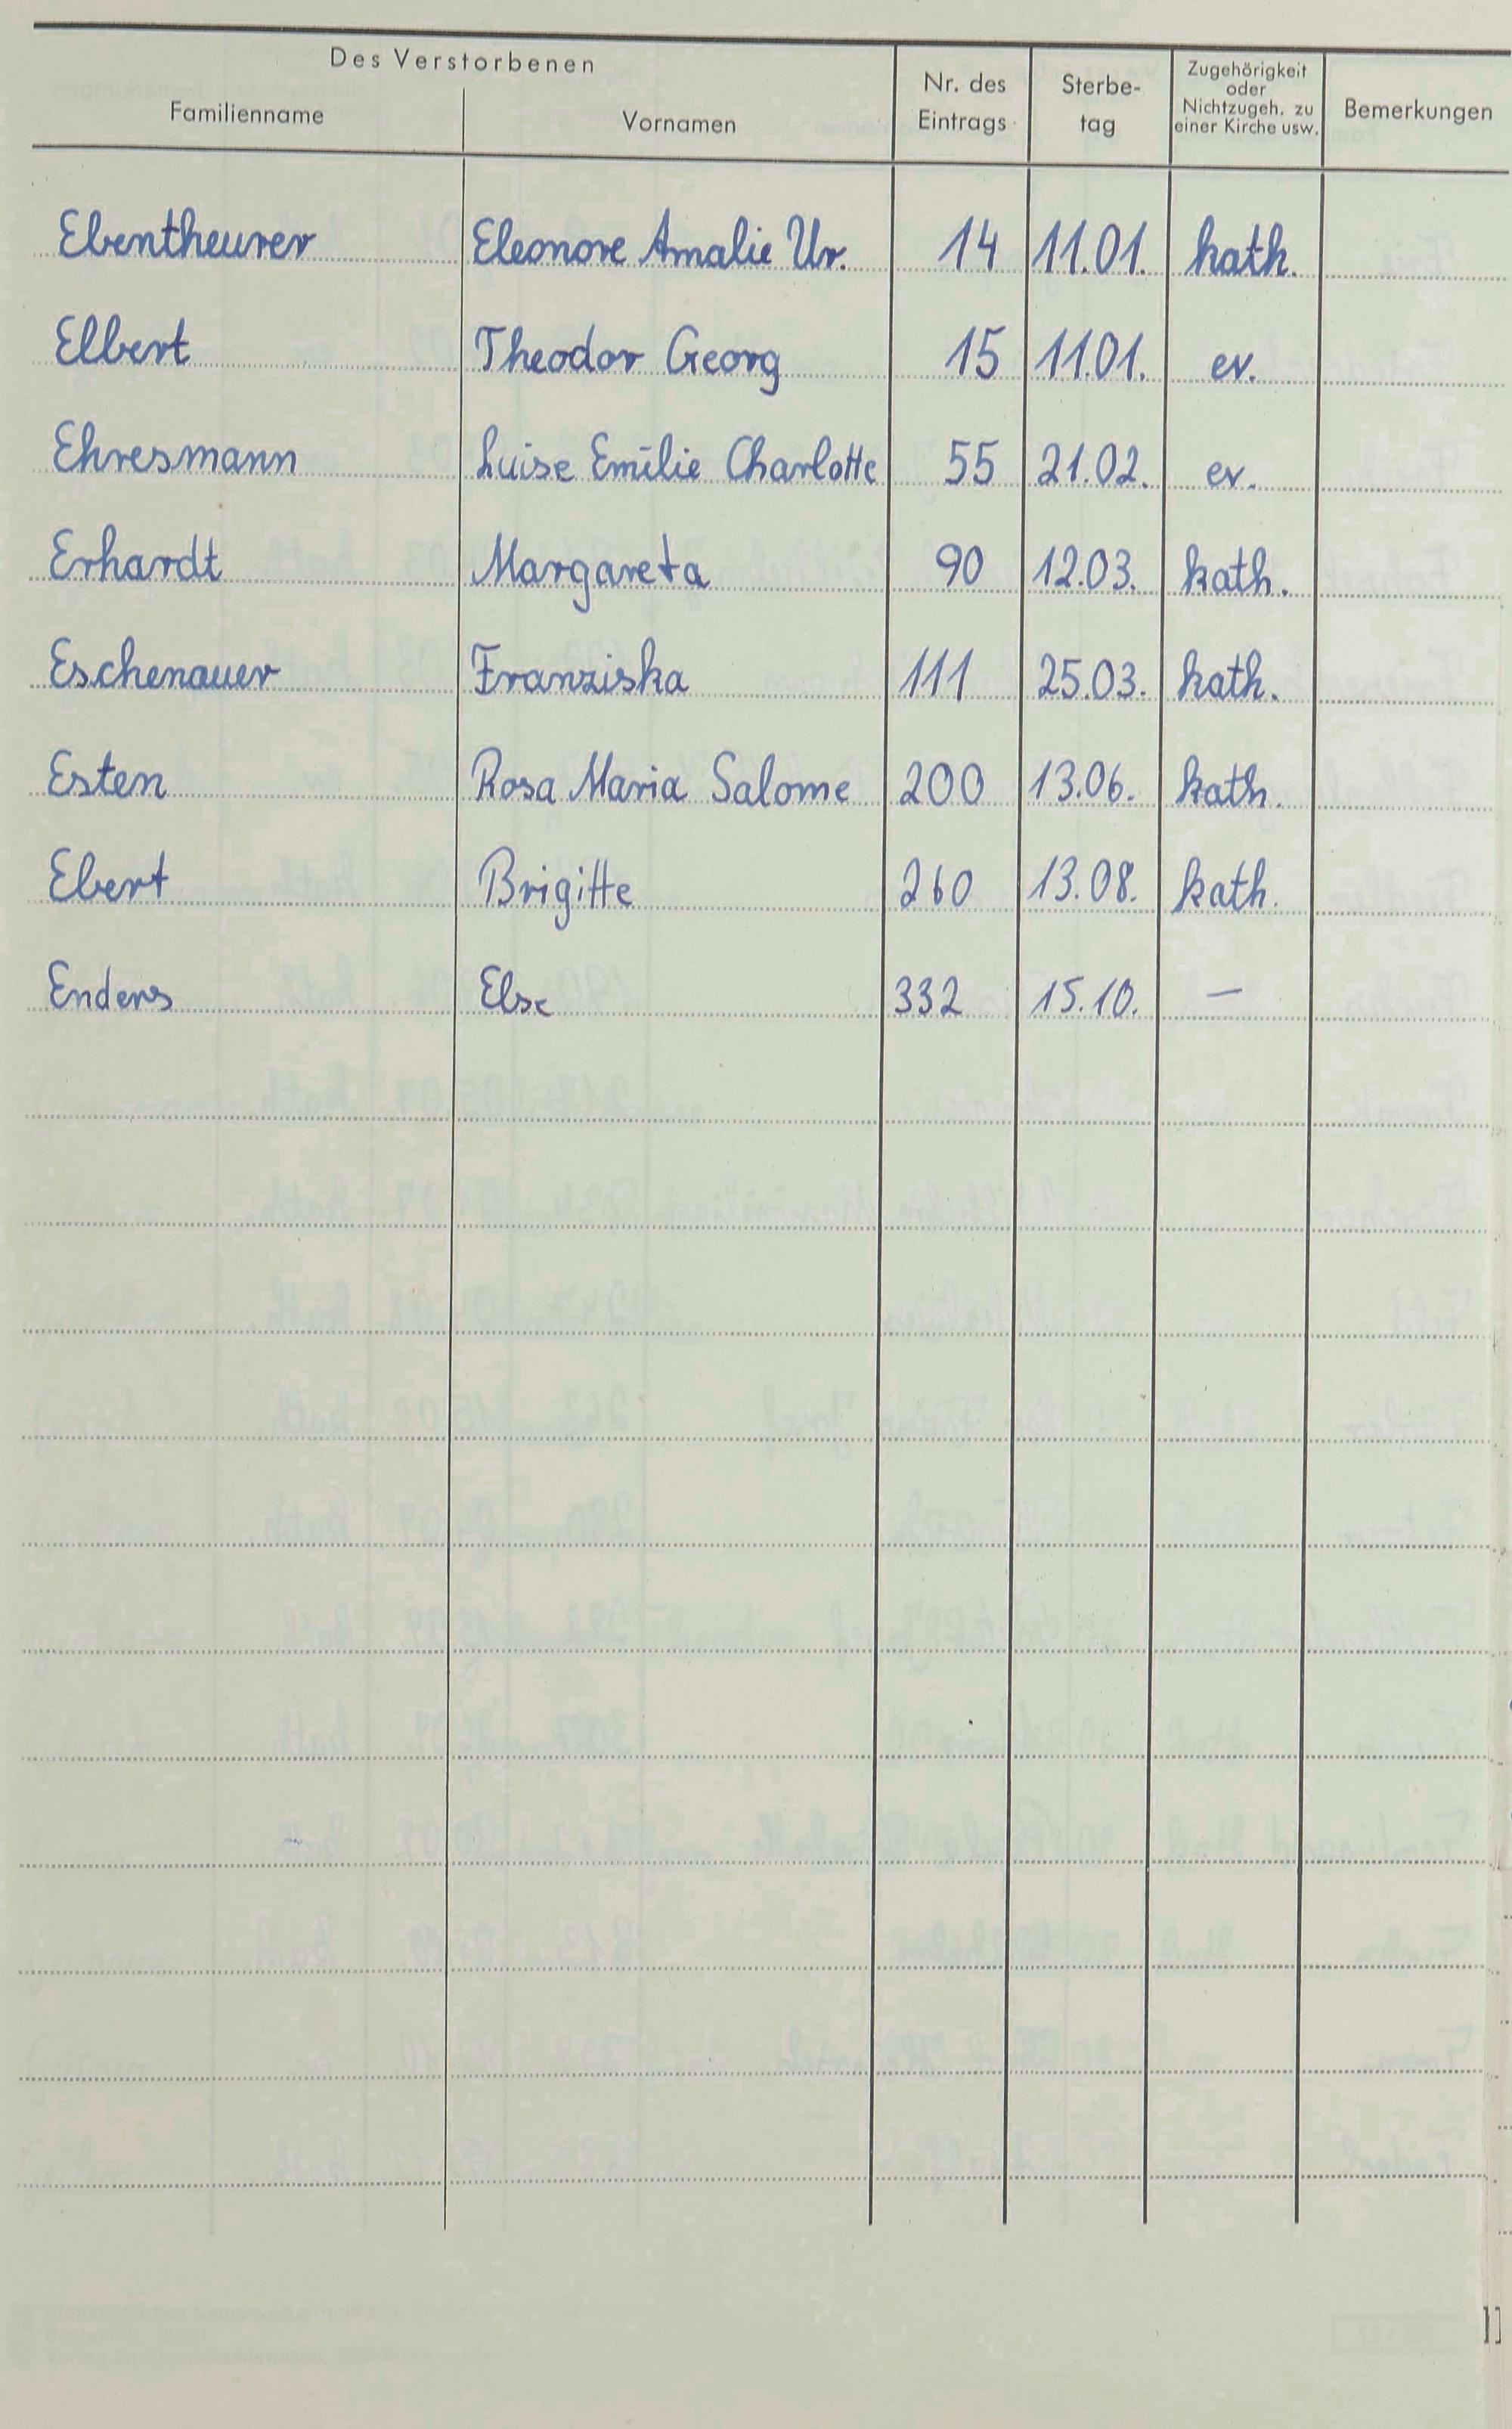 Des Verstorbenen
Familienname Vornamen Nr. des Eintrags Sterbe-tag Zugehörigkeit oder Nichtzugeh. zu einer Kirche usw. Bemerkungen
Ebentheurer Eleonore Amalie Ur. 14 11.01. kath.
Elbert Theodor Georg 15 11.01. ev.
Ehresmann Luise Emilie Charlotte 55 21.02. ev.
Erhardt Margareta 90 12.03. kath.
Eschenauer Franziska 111 25.03. kath.
Esten Rosa Maria Salome 200 13.06. kath.
Ebert Brigitte 260 13.08. kath.
Enders Else 332 15.10. —